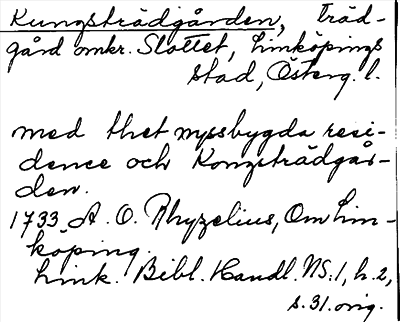 Kungsträdgården, Träd-
gård omkr. Slottet, Linköpings
stad, Österg. l.
med thet nyssbygda resi-
dence och Kongsträdgår-
den.
1733 A. O. Rhyzelius, Om Lin-
köping.
Link. Bibl. Handl. NS. 1, h. 2,
s. 31. orig.